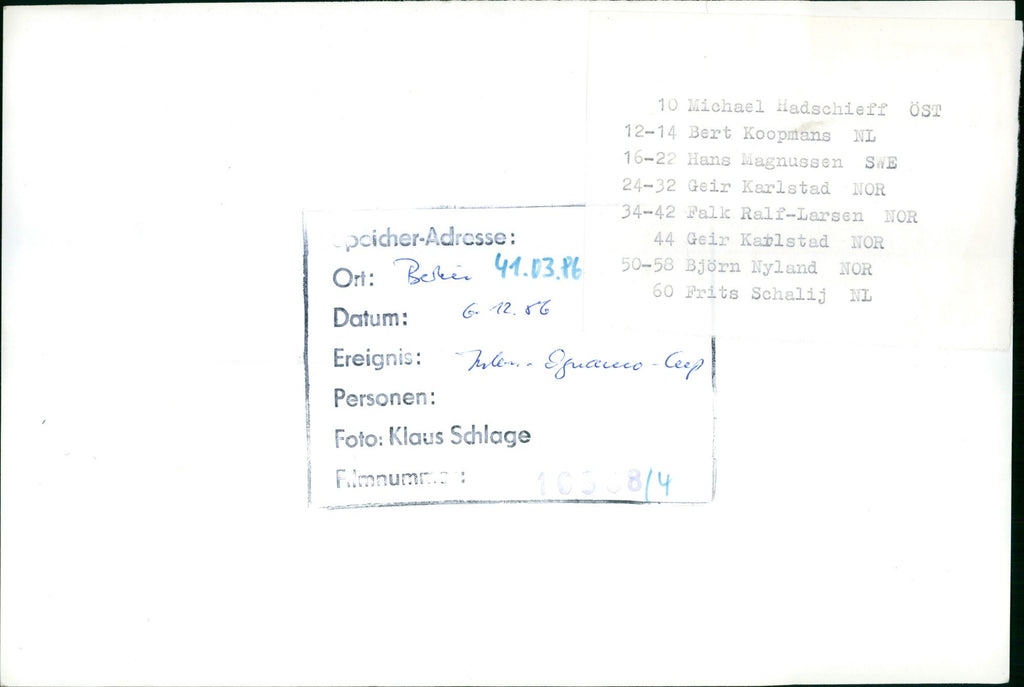 10 Michael Hadschieff ÖST
12-14 Bert Koopmans NL
16-22 Hans Magnussen SWE
24-32 Geir Karlstad NOR
34-42 Falk Ralf-Larsen NOR
44 Geir Karlstad NOR
50-58 Björn Nyland NOR
60 Frits Schalij NL
Speicher-Adresse:
Ort: Berlin 41.03.86
Datum: 6.12.86
Ereignis: -Cup
Personen:
Foto: Klaus Schlage
Filmnummer: /4